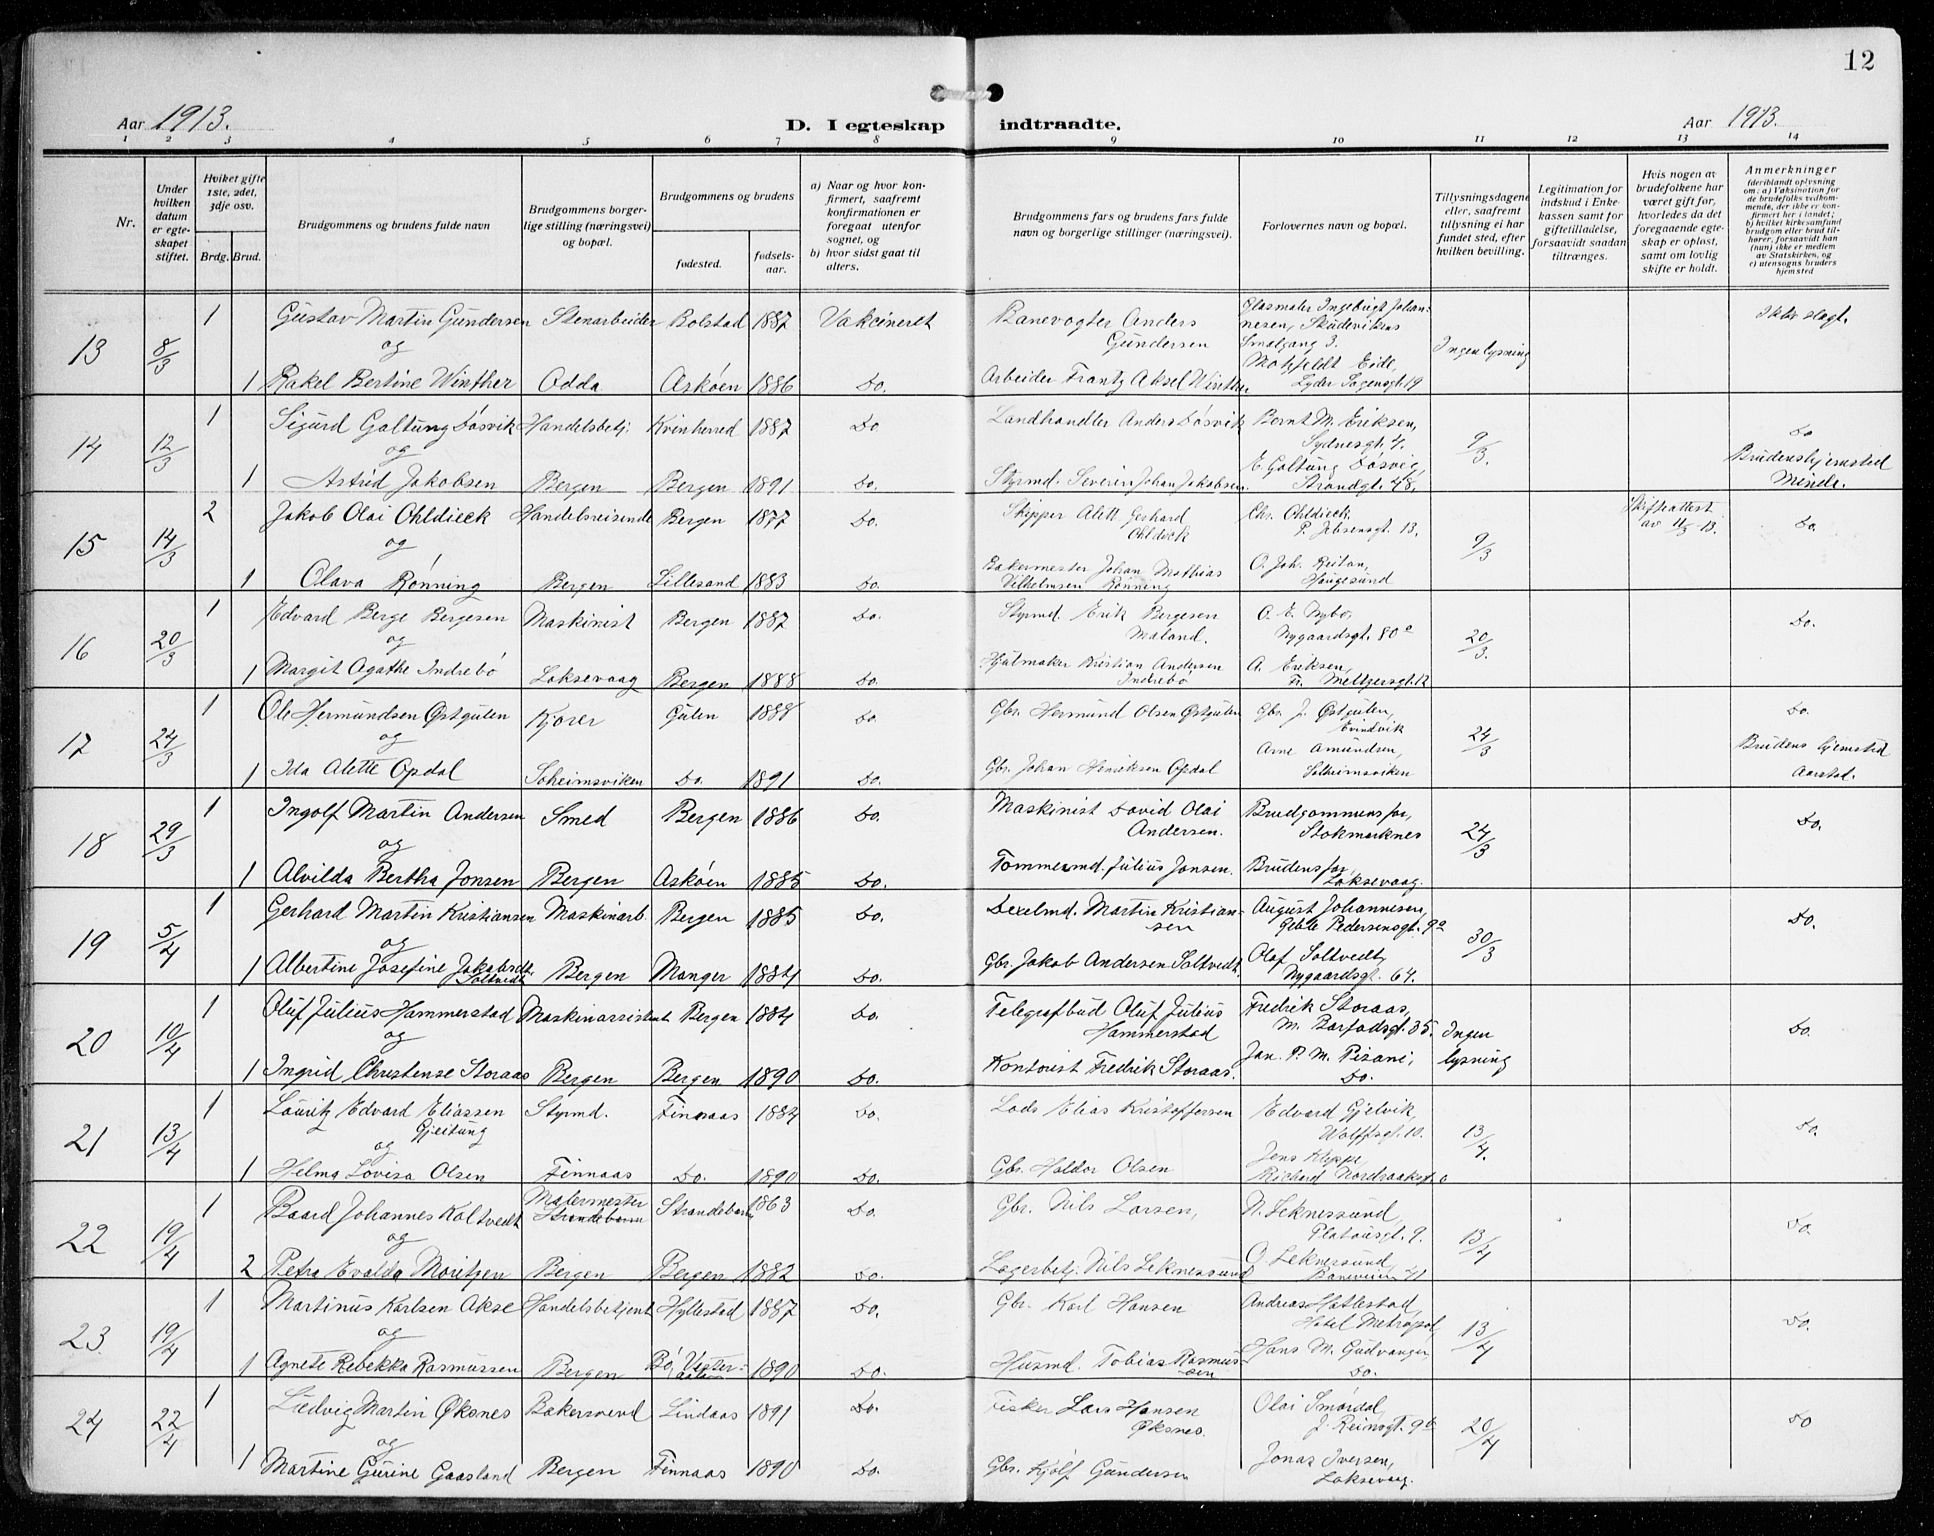 12
Aar 1913. D. I egteskap indtraadte. Aar 1913.
1 2 3 4 5 6 7 8 9 10 11 12 13 14
Nr.
Under hvilken datum er egteskapet stiftet.
Hvilket gifte 1ste, 2det, 3dje osv.
Brdg. Brud.
Brudgommens og brudens fulde navn
Brudgommens borgerlige stilling (næringsvei) og bopæl.
Brudgommens og brudens
fødested. fødselsaar.
a) Naar og hvor konfirmert, saafremt konfirmationen er foregaat utenfor sognet, og
b) hvor sidst gaat til alters.
Brudgommens fars og brudens fars fulde navn og borgerlige stillinger (næringsvei).
Forlovernes navn og bopæl.
Tillysningsdagene eller, saafremt tillysning ei har fundet sted, efter hvilken bevilling.
Legitimation for indskud i Enkekassen samt for giftetilladelse, forsaavidt saadan tiltrænges.
Hvis nogen av brudefolkene har været gift før, hvorledes da det foregaaende egteskap er opløst, samt om lovlig skifte er holdt.
Anmerkninger
(deriblandt oplysning om: a) Vaksination for de brudefolks vedkommende, der ikke er konfirmert her i landet; b) hvilket kirkesamfund brudgom eller brud tilhører, forsaavidt han (hun) ikke er medlem av Statskirken, og c) utensogns bruders hjemsted
13 8/3 1 Gustav Martin Gundersen Stenarbeider Bolstad 1887 Vakcineret Banevogter Anders Gundersen Glasmaler Ingebrigt Johannesen, Skudevikens Smalgang 3. Ingen lysning Ikke slegt.
og
1 Rakel Bertine Winther Odda Askøen 1886 Do. Arbeider Frantz Aksel Winther Eide, Lyder Sagensgt. 19
14 12/3 1 Sigurd Galtung Døsvik Handelsbetj. Kvinherred 1887 Do Landhandler Anders Døsvik Bernt M. Eriksen, Sydnesgt. 4. 9/3. Do
og
1 Astrid Jakobsen Bergen Bergen 1891 Do. Styrmd. Severin Johan Jakobsen. E. Galtung Døsvig, Strandgt. 48, Brudens hjemsted Minde.
15 14/3 2 Jakob Olai Ohldieck Handelsreisende Bergen 1877 Do. Skipper Alett Gerhard Ohldieck Chr. Ohldieck P. Jebsensgt. 13. 9/3 Skifteattest av 11/3 13. Do.
og
1 Olava Rønning Bergen Lillesand 1883 Do. Bakermester Johan Mathias Vilhelmsen Rønning O. Joh. Reitan, Haugesund
16 20/3 1 Edvard Berge Bergesen Maskinist Bergen 1887 Do. Styrmd. Erik Bergesen Maland. O. E. Nybø, Nygaardsgt. 80c 20/3. Do.
og
1 Margit Agathe Indrebø Laksevaag Bergen 1888 Do. Hjulmaker Kristian Andersen Indrebø A. Eriksen, Fr. Meltzersgt. 12
17 24/3 1 Ole Hermundsen Østgulen Kjører Gulen 1888 Do. Gbr. Hermund Olsen Østgulen Gbr. J. Østgulen, Evindvik 24/3 Do.
og
1 Ida Alette Opdal Solheimsviken Do. 1891 Do. Gbr. Johan Henriksen Opdal Arne Amundsen, Solheimsviken Brudens hjemsted Aarstad.
18 29/3 1 Ingolf Martin Andersen Smed Bergen 1886 Do. Maskinist David Olai Andersen. Brudgommens far, Stokmarknes 24/3 Do.
og
1 Alvilda Bertha Jonsen Bergen Askøen 1885 Do. Tømmermd. Julius Jonsen. Brudens far, Laksevaag.
19 5/4 1 Gerhard Martin Kristiansen Maskinarb. Bergen 1885 Do. Dexelmd. Martin Kristiansen August Johannesen, Geble Pedersensgt. 9a 30/3 Do.
og
1 Albertine Josefine Jakobsdt. Saltvedt Bergen Manger 1884 Do. Gbr. Jakob Andersen Saltvedt. Olaf Saltvedt, Nygaardsgt. 64.
20 10/4 1 Oluf Julius Hammerstad Maskinassistent Bergen 1884 Do. Telegrafbud Oluf Julius Hammerstad Fredrik Storaas, M. Barfodsgt. 35. Ingen lysning Do.
og
1 Ingrid Christense Storaas Bergen Bergen 1890 Do. Kontorist Fredrik Storaas. Jan. P. M. Pizani, Do.
21 13/4 1 Lauritz Edvard Eliassen Gjeitung Styrmd. Finnaas 1884 Do. Lods Elias Kristoffersen Edvard Gjelvik, Wolffsgt. 10. 13/4. Do.
og
1 Helma Lovisa Olsen Finnaas Do. 1890 Do. Gbr. Haldor Olsen Jens Kleppe, Richard Nordraaksgt.
22 19/4 1 Baard Johannes Koltvedt Malermester Strandebarm Strandebarm 1863 Do. Gbr. Nils Larsen, N. Leknessund, Platousgt. 9. 13/4 Do.
og
2 Petra Evalda Moritzen Bergen Bergen 1882 Do. Lagerbetj. Nils Leknessund O. Leknessund, Baneveien 41
23 19/4 1 Martinus Karlsen Akse Handelsbetjent Hyllestad 1887 Do. Gbr. Karl Hansen Andreas Hatlestad, Hotel Metropol, 13/4 Do.
og
1 Agnete Rebekka Rasmussen Bergen Bø, Vesteraalen 1890 Do. Husmd. Tobias Rasmussen Hans M. Gudvangen, Do.
24 22/4 1 Ludvig Martin Øksnes Bakersvend Lindaas 1891 Do. Fisker Lars Hansen Øksnes. Olai Smørdal, J. Reinsgt. 9b 20/4 Do
og
1 Martine Gurine Gaasland Bergen Finnaas 1890 Do. Gbr. Kjølf Gundersen Jonas Iversen, Laksevaag.